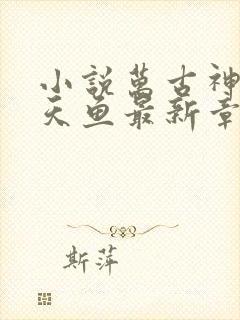 小說萬古神
天魚最新章
斯萍